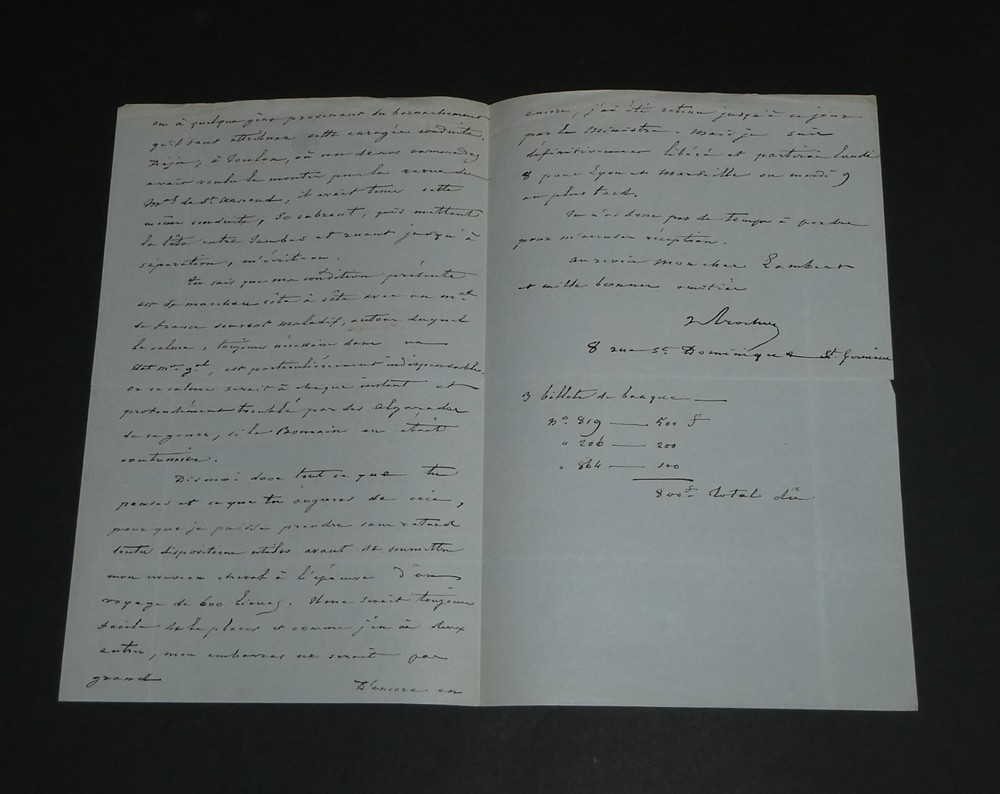 ou à quelque gêne provenant du harnachement
qu'il faut attribuer cette enragée conduite.
Déjà, à Toulon, où un de nos camarades
avait voulu le monter pour la revue du
Mal de St Arnaud, il avait tenu cette
même conduite, se cabrant, puis mettant
la tête entre jambes et ruant jusqu'à
séparation, m'écrit-on.
Tu sais que ma condition présente
est de marcher côte à côte avec un mal
de france souvent maladif, autour duquel
le calme, toujours nécessaire dans un
état mor gal, est particulièrement indispensable.
ce calme serait à chaque instant et
profondément troublé par des algarades
de ce genre, si le Romain en était
coutumier.
Dis moi donc tout ce que tu
penses et ce que tu augures de ceci,
pour que je puisse prendre sans retard
toutes dispositions utiles avant de soumettre
mon nouveau cheval à l'épreuve d'un
voyage de 600 lieues. Il me serait toujours
facile de le placer et comme j'en ai deux
autres, mon embarras ne serait pas
grand
D'encore en
encore, j'ai été retenu jusqu'à ce jour
par le Ministre. Mais je suis
définitivement libéré et partirai lundi
8 pour Lyon et Marseille ou mardi 9
au plus tard.
Tu n'as donc pas de temps à perdre
pour m'accuser réception.
au revoir mon cher Lambert
et mille bonnes amitiés
Trochu
8 rue St Dominique St Germain
3 billets de banque —
No. 819 — 500 f
" 206 — 200
" 864 — 100
800 f. total dû